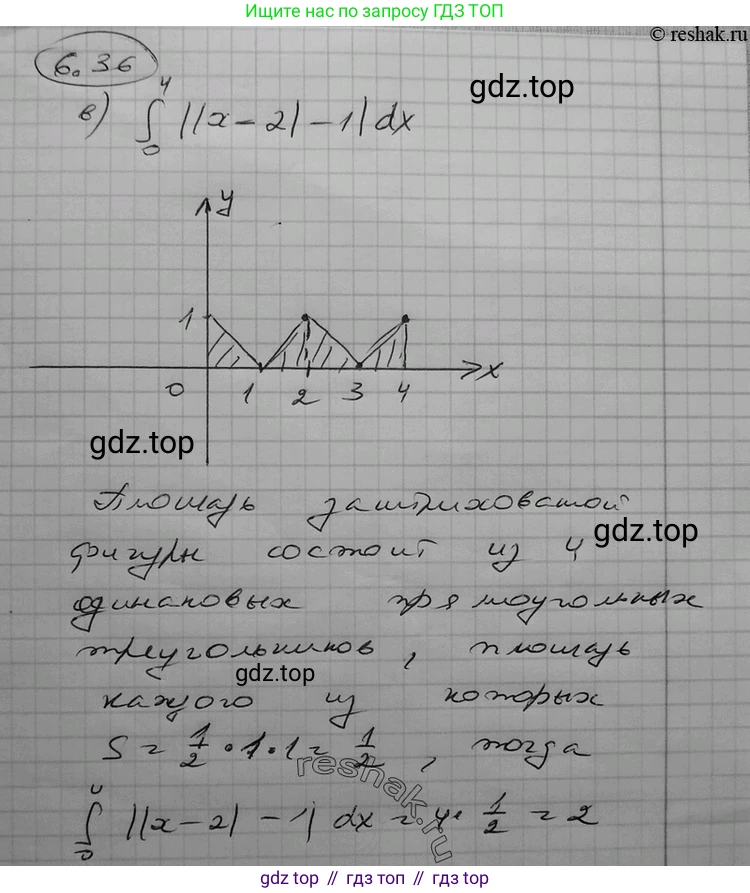 Ищите нас по запросу ГДЗ ТОП
© reshak.ru
6.36
gdz.top
в) ∫₀⁴ ||x-2|-1| dx
y
1
0 1 2 3 4 x
gdz.top
Площадь заштрихованной
gdz.top
фигуры состоит из 4
одинаковых прямоугольных
треугольников, площадь
gdz.top
каждого из которых
S = 1/2 · 1 · 1 = 1/2, тогда
reshak.ru
∫₀⁴ ||x-2|-1| dx = 4 · 1/2 = 2
gdz.top // гдз топ // гдз top